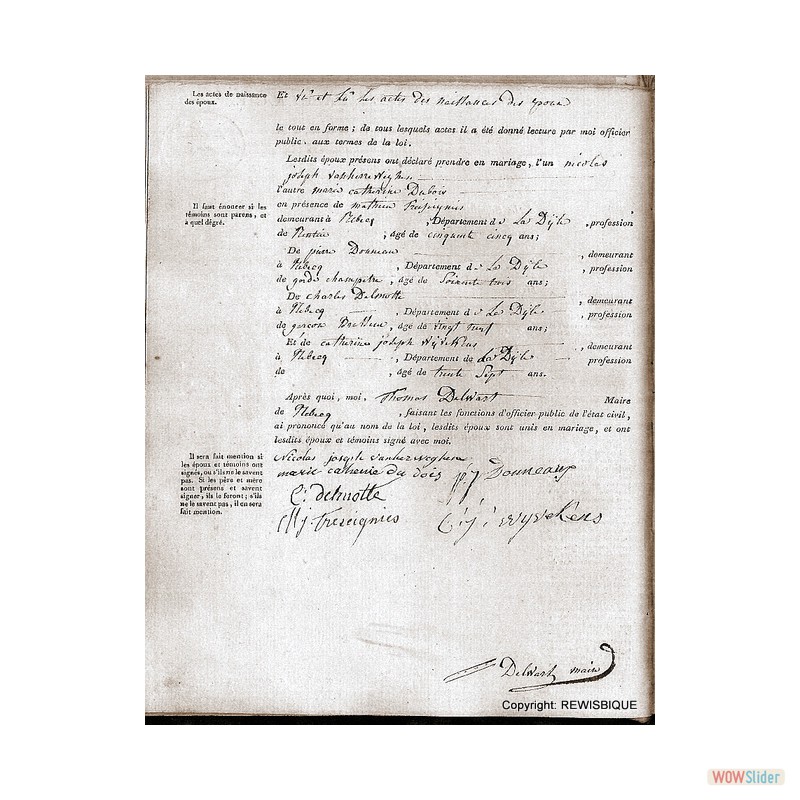 Les actes de naissance
des époux.
Et vu et lu les actes des naissances des epoux
le tout en forme ; de tous lesquels actes il a été donné lecture par moi officier
public, aux termes de la loi.
Lesdits époux présens ont déclaré prendre en mariage, l'un nicolas
joseph vanherreweghen
l'autre marie catherine Dubois
Il faut énoncer si les
témoins sont parens, et
à quel dégré.
en présence de mathieu
demeurant à Rebecq , Département de La Dyle , profession
de , âgé de cinquante cinq ans ;
De pierre Donneau , demeurant
à Rebecq , Département de La Dyle , profession
de garde champetre , âgé de Soixante trois ans ;
De charles Delmotte , demeurant
à Rebecq , Département de La Dyle , profession
de garcon Brasseur , âgé de vingt neuf ans ;
Et de catherine joseph Wyvekens , demeurant
à Rebecq , Département de La Dyle profession
de , âgé de trente Sept ans.
Après quoi, moi, Thomas Delwart Maire
de Rebecq , faisant les fonctions d'officier public de l'état civil,
ai prononcé qu'au nom de la loi, lesdits époux sont unis en mariage, et ont
lesdits époux et témoins signé avec moi.
Il sera fait mention si
les époux et témoins ont
signés, ou s'ils ne le savent
pas. Si les père et mère
sont présens et savent
signer, ils le feront ; s'ils
ne le savent pas, il en sera
fait mention.
Nicolas joseph
marie catherine du bois Donneaux
C. delmotte
M j. treseignies C. j. wyvekens
Delwart maire
Copyright: REWISBIQUE
WOWSlider